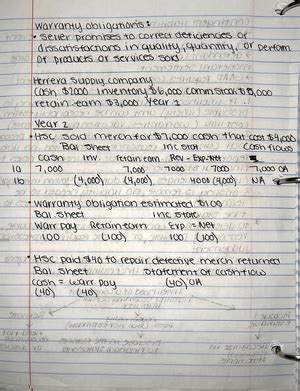 Warranty obligations:
• Seller promises to correct deficiencies or
dissatisfactions in quality, quantity, or perform
of products or services sold
Herrera Supply Company
Cash $7,000 inventory $6,000 comm stock $
retain. earn $3,000 Year 1
Year 2
• HSC sold merch for $7,000 cash that cost $4,000
Bal Sheet Inc Stat Cash flows
cash inv. retain earn Rev - Exp = Net
1a 7,000 7,000 7000 7000 7,000 OA
1b (4,000) (4,000) 4000 (4,000) NA
• Warranty obligation estimated $100
Bal. Sheet Inc State
Warr Pay Retain earn Exp = Net
100 (100) 100 (100)
• HSC paid $40 to repair defective merch returned
Bal. Sheet Statement of Cash flow
Cash = warr pay (40) OA
(40) (40)